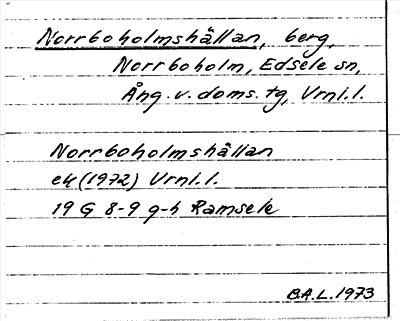 Norrboholmshällan, berg,
Norrboholm, Edsele sn,
Ång. v. doms. tg, Vrnl.l.
Norrboholmshällan
ek (1972) Vrnl.l.
19 G 8-9 g-h Ramsele
B.A.L. 1973